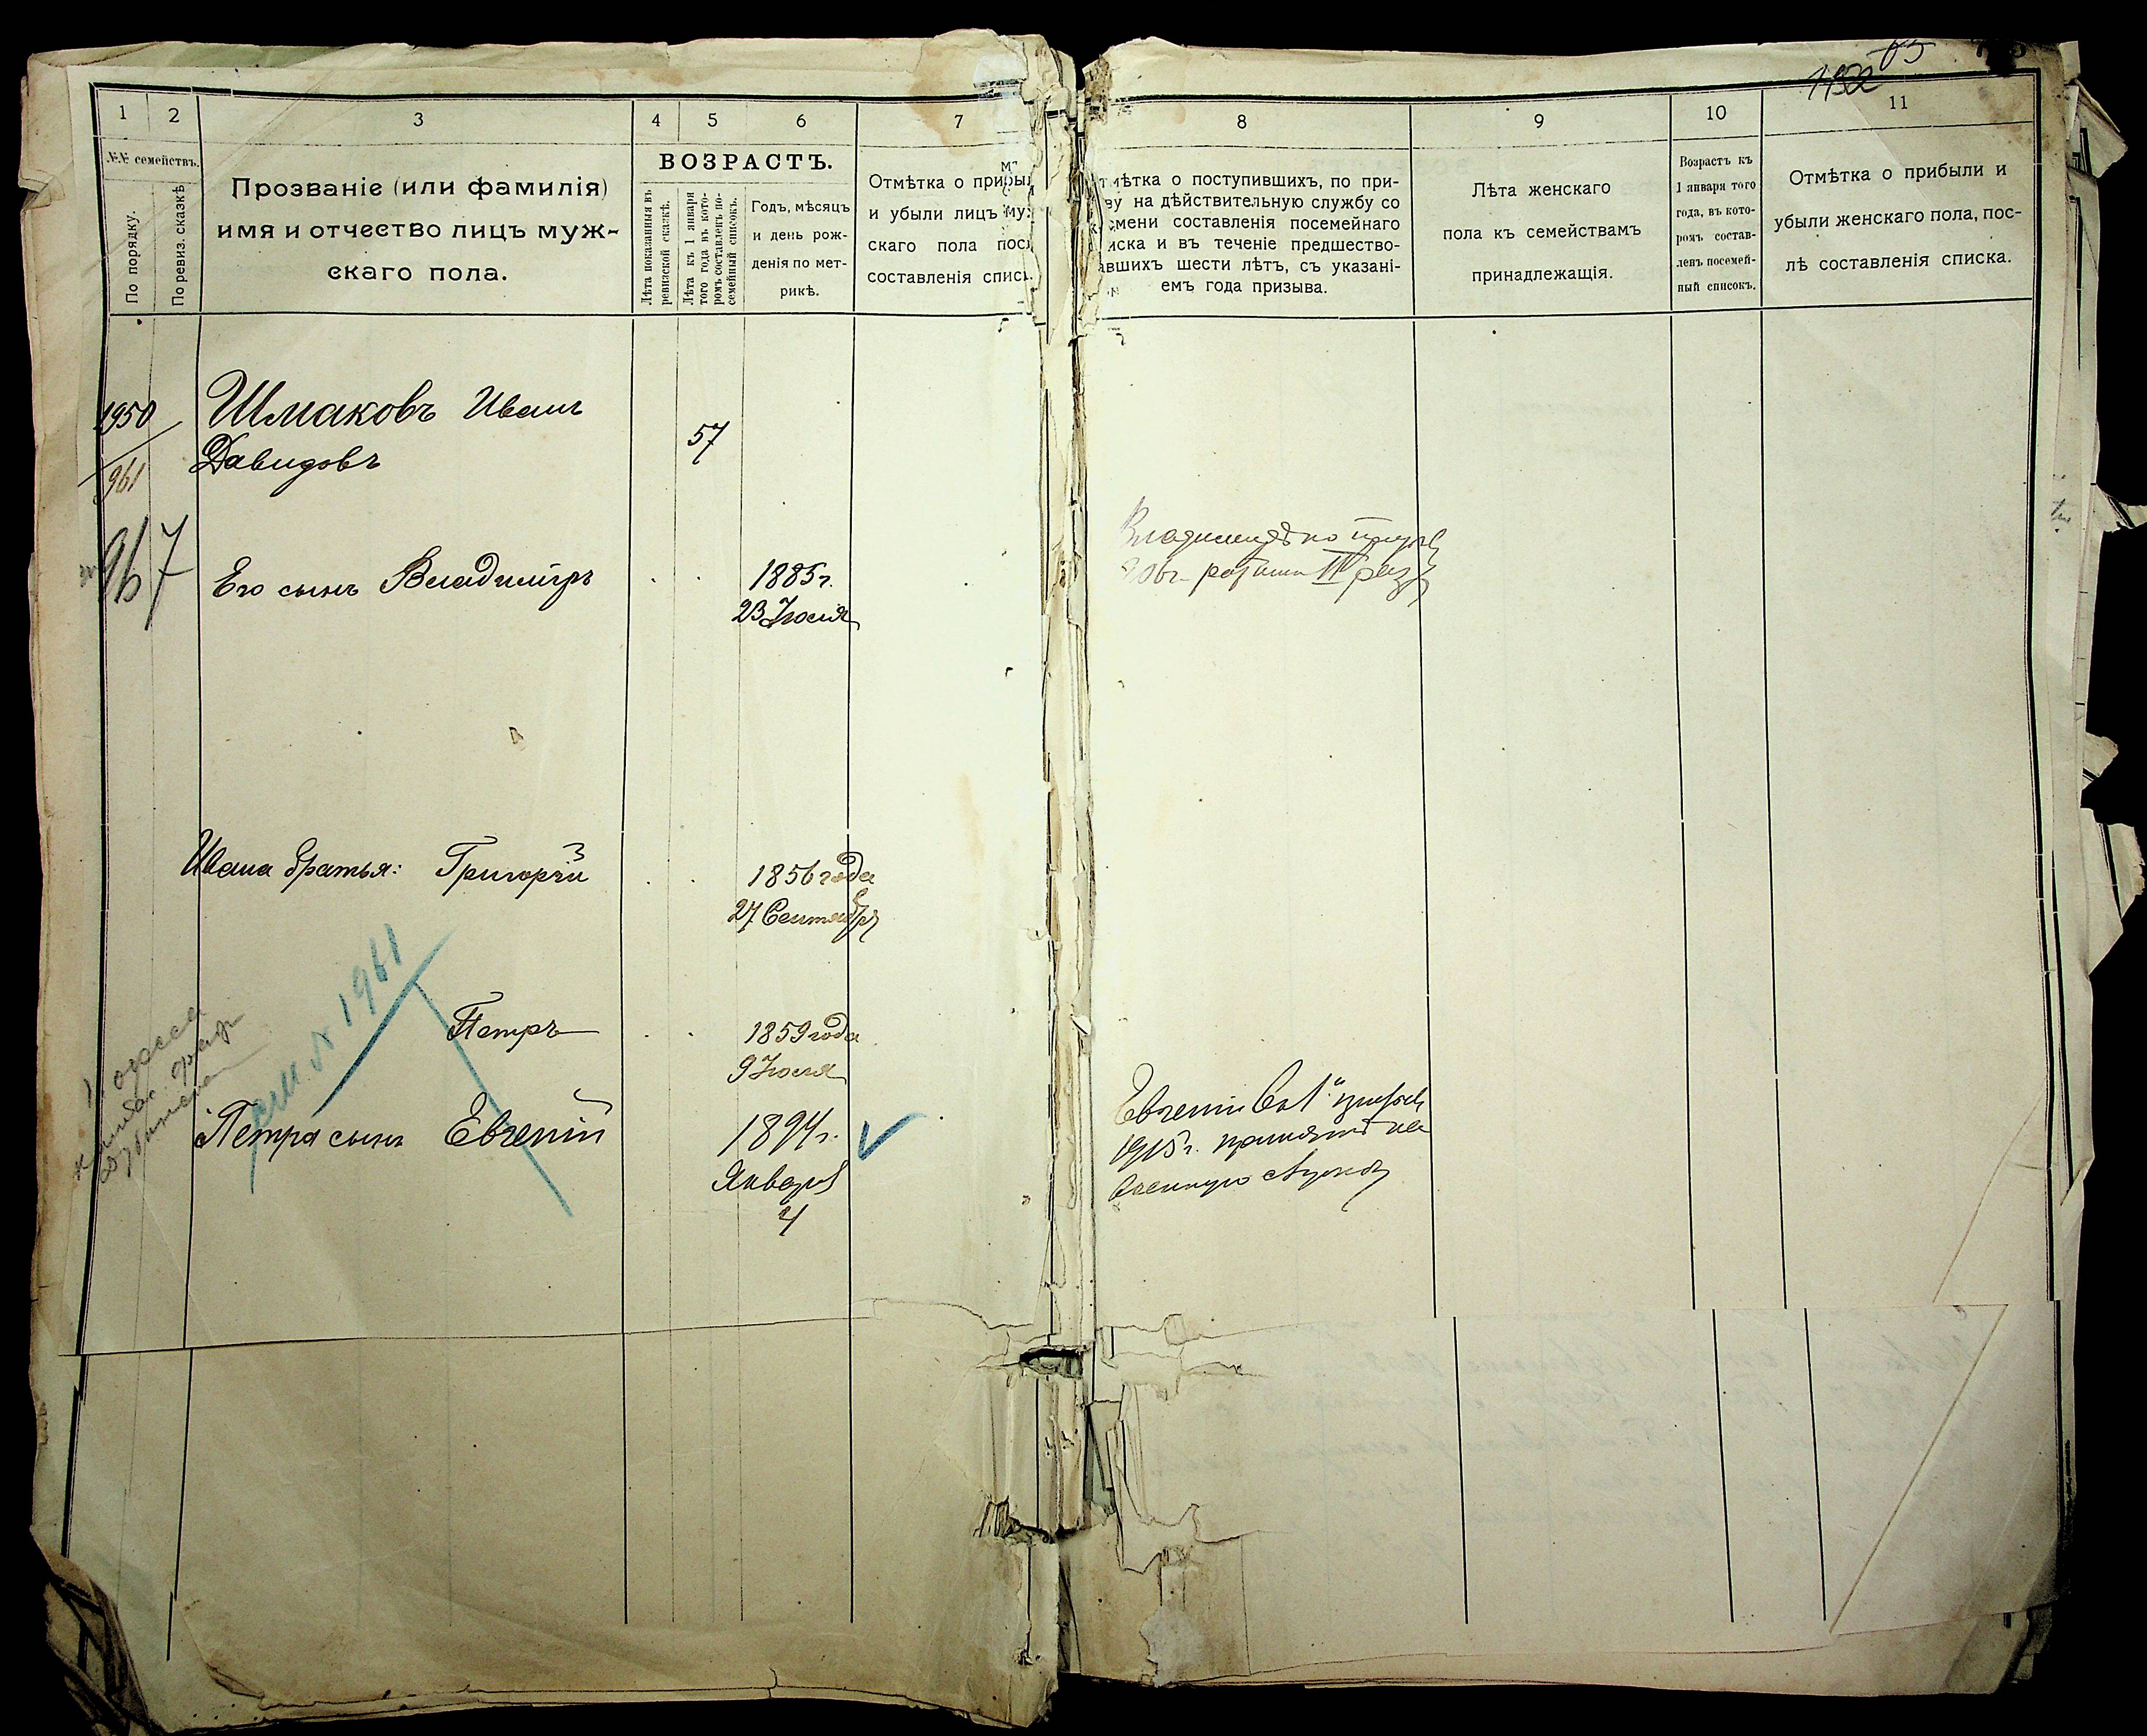 1 2 3 4 5 6 7 8 9 10 11
№№ семействъ.
По порядку.
По ревиз. сказкѣ
Прозваніе (или фамилія)
имя и отчество лицъ муж-
скаго пола.
ВОЗРАСТЪ.
Лѣта показанныя въ
ревизской сказкѣ.
Лѣта къ 1 января
того года въ кото-
ромъ составленъ по-
семейный списокъ.
Годъ, мѣсяцъ
и день рож-
денія по мет-
рикѣ.
Отмѣтка о прибыл
и убыли лицъ муж
скаго пола посл
составленія списк
тмѣтка о поступившихъ, по при-
ву на дѣйствительную службу со
емени составленія посемейнаго
иска и въ теченіе предшество-
авшихъ шести лѣтъ, съ указані-
емъ года призыва.
Лѣта женскаго
пола къ семействамъ
принадлежащія.
Возрастъ къ
1 января того
года, въ кото-
ромъ состав-
ленъ посемей-
ный списокъ.
Отмѣтка о прибыли и
убыли женскаго пола, пос-
лѣ составленія списка.
1950 Шмаковъ Иванъ
Давидовъ 57
961
967
Его сынъ Владиміръ 1885 г.
23 Іюля
Владиміръ по
ратник II разр
Ивана братья: Григорій 1856 года
27 Сентября
см. № 1961
Петръ 1859 года
9 Іюля
Петра сынъ Евгеній 1894 г.
Января
4
Евгеній въ
1915 г. принятъ на
военную службу